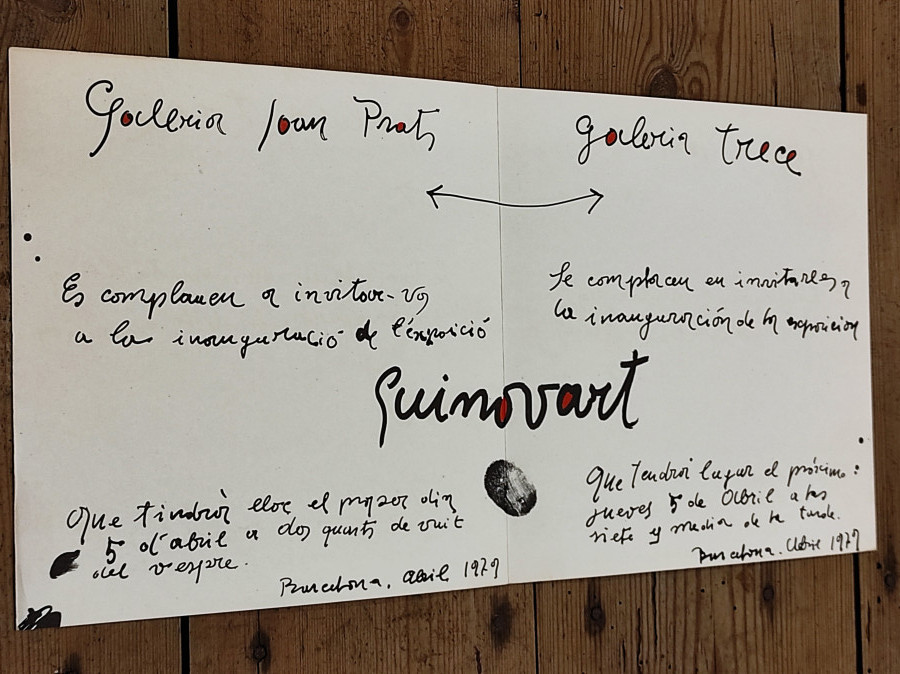 Galeria Joan Prats
Es complauen a invitar-vos
a la inauguració de l'éxposició
Guinovart
que tindrà lloc el proper dia
5 d'abril a dos quarts de vuit
del vespre.
Barcelona, abril 1979
Galeria Trece
Se complacen en invitarles a
la inauguración de la exposicion
que tendrá lugar el próximo:
jueves 5 de Abril a las
siete y media de la tarde.
Barcelona. Abril 1979